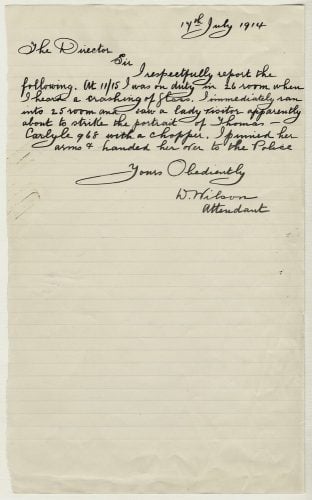 17th July 1914
The Director
Sir
I respectfully report the
following. At 11/15 I was on duty in 26 room when
I heard a crashing of Glass. I immediately ran
into 25 room and saw a lady visitor apparently
about to strike the portrait of Thomas –
Carlyle 968 with a chopper. I pinned her
arms & handed her over to the Police
Yours Obediently
D. Wilson
Attendant